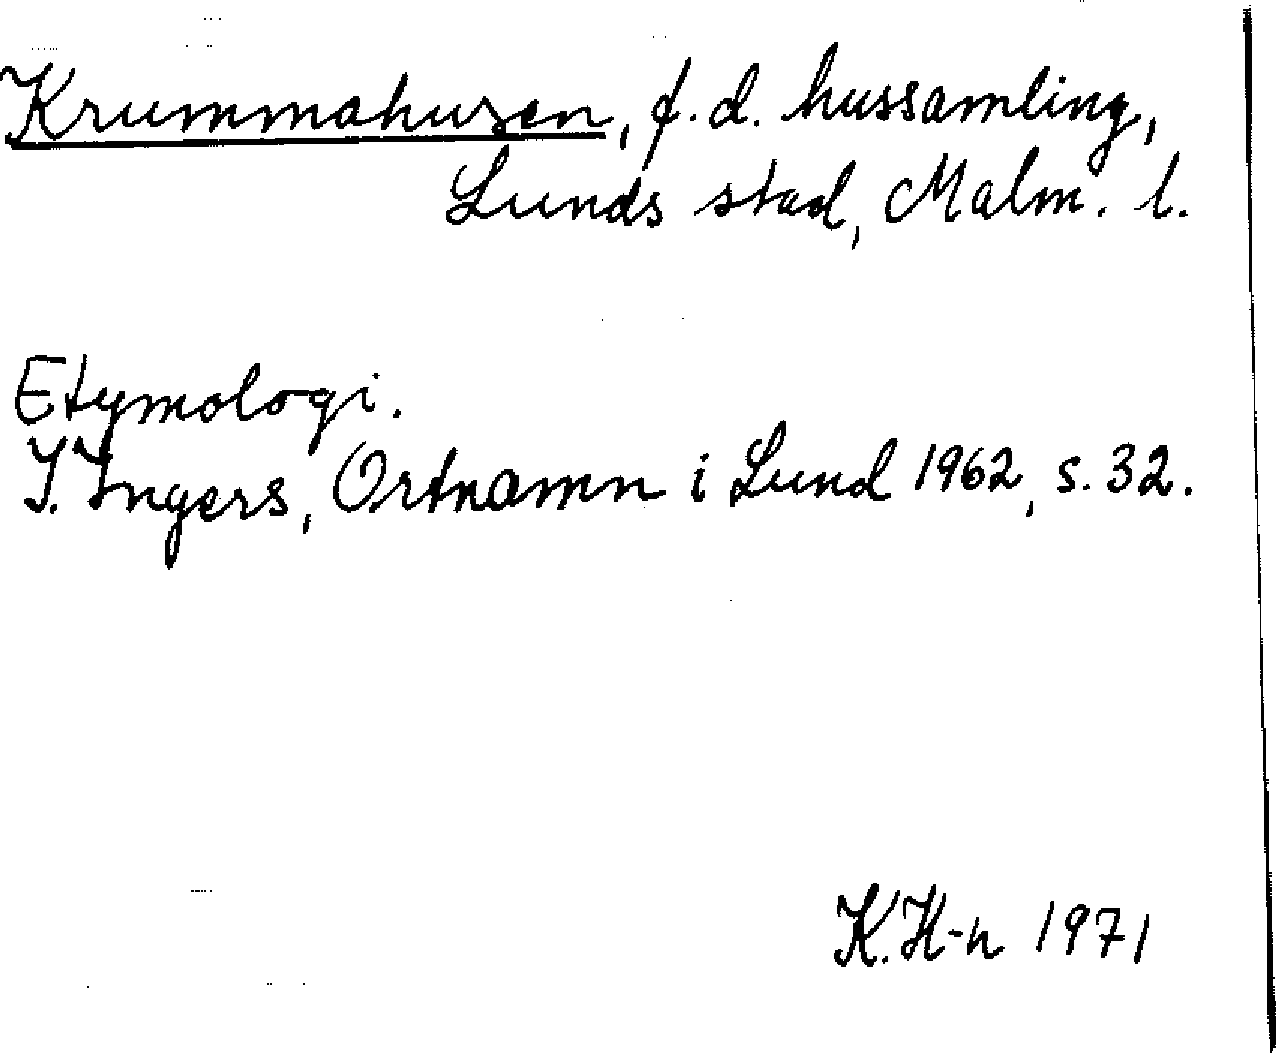 Krummahusen, f.d. hussamling,
Lunds stad, Malm. l.
Etymologi.
I. Ingers, Ortnamn i Lund 1962, s. 32.
K. H-n 1971